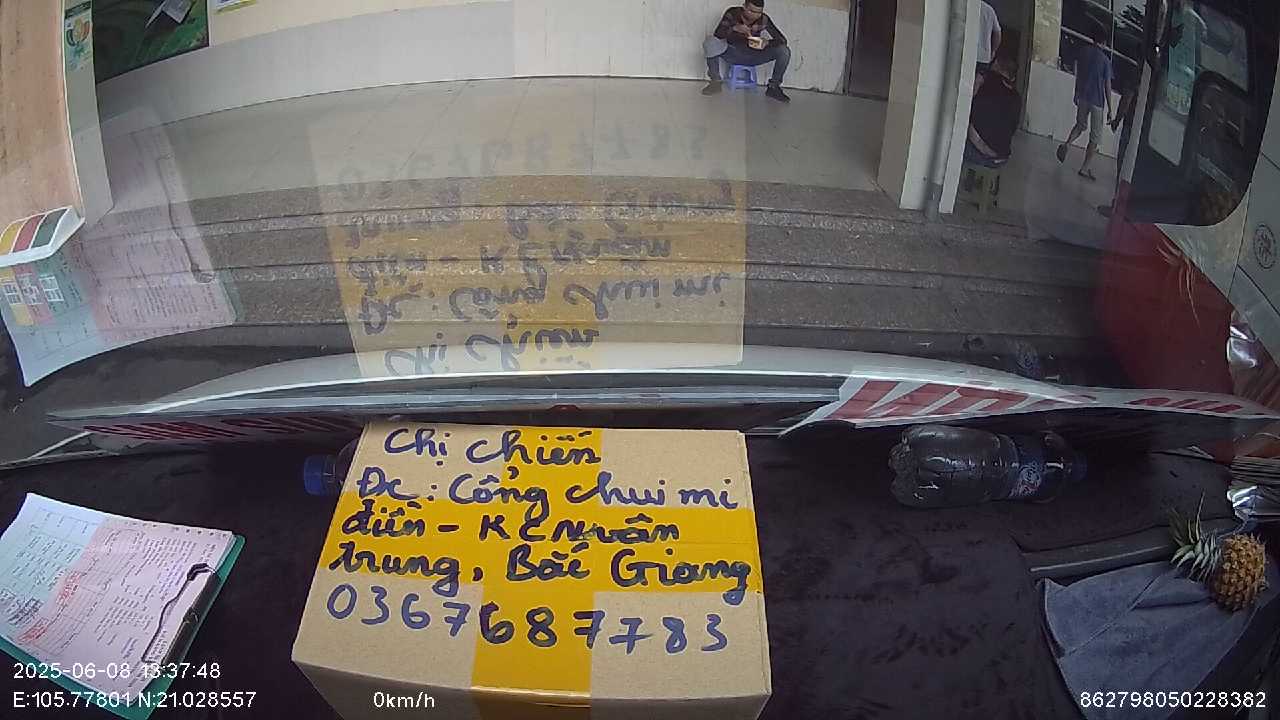 Chị Chiến
Đc: Cổng chui mi
điền - KCN Vân
trung, Bắc Giang
0367687783
2025-06-08 13:37:48
E:105.77801 N:21.028557
0km/h
862798050228382